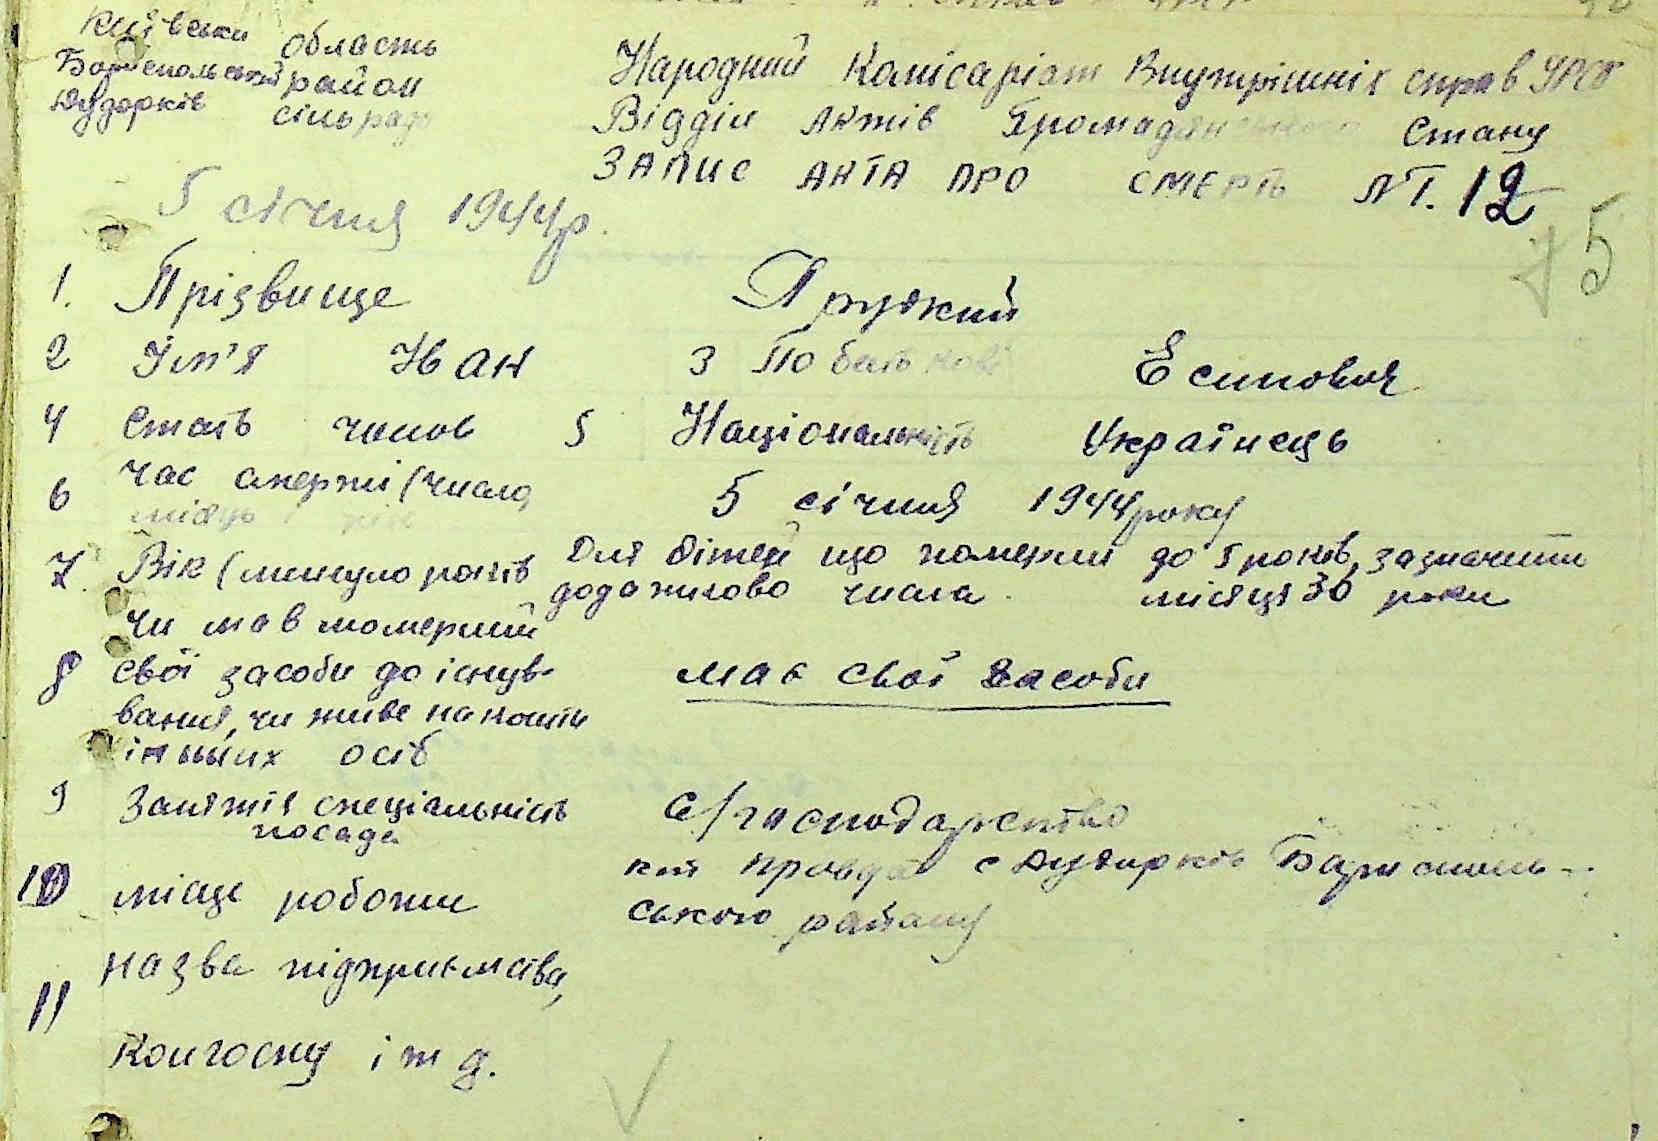 Київська область
Бориспольський район
Дударків сільрад
Народний Комісаріат Внутрішніх справ УРСР
Відділ Актів Громадянського Стану
ЗАПИС АКТА ПРО СМЕРТЬ №. 12
75
5 січня 1944р.
1. Прізвище
2 Ім'я Іван 3 По батькові Есипович
4 Стать чолов 5 Національність Українець
6 час смерти (число, місяць рік 5 січня 1944 року
7. Вік (минуло років Для дітей що померли до 5 років, зазначити
додатково числа місяця 36 роки
чи мав померший
8 свої засоби до існув- має свої засоби
вання, чи живе на кошти
інших осіб
9 Заняття спеціальність С/господарство
посада
10 місце роботи кт Правда с Дударків Бориспіль-
ського району
11 назва підприємства,
Колгоспу і т д.